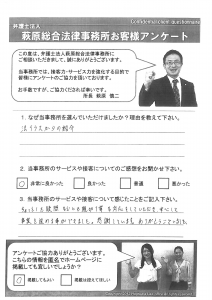 Confidential client questionnaire
弁護士法人
萩原総合法律事務所お客様アンケート
この度は、弁護士法人萩原総合法律事務所に
ご相談いただきまして、誠にありがとうございます。
当事務所では、接客力・サービス力を強化する目的で
皆様にアンケートのご協力を頂いております。
お手数ですが、ご協力くだされば幸いです。
所長 萩原 慎二
1. なぜ当事務所を選んでいただけましたか?理由を教えて下さい。
法テラスからの紹介
2. 当事務所のサービスや接客についてのご感想をお聞かせ下さい。
非常に良かった
良かった
普通
悪かった
3. 当事務所のサービスや接客について感じたことをご記入下さい。
アンケートご協力ありがとうございます。
こちらの情報を匿名でホームページに
掲載しても宜しいでしょうか?
掲載してもよい
掲載は控えてほしい